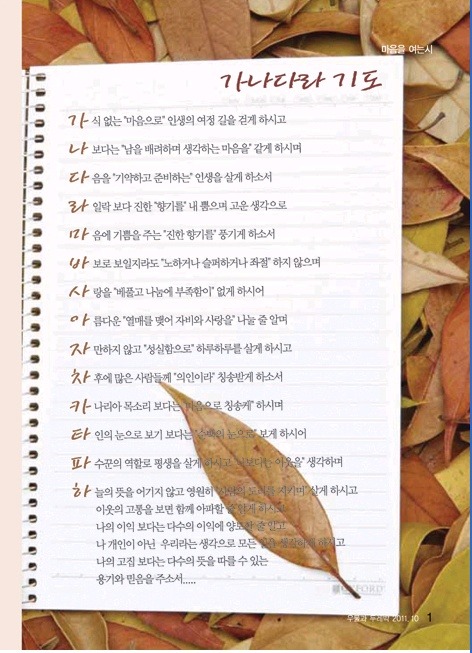 마음을 여는시
가나다라 기도
가 식 없는 "마음으로" 인생의 여정 길을 걷게 하시고
나 보다는 "남을 배려하며 생각하는 마음을" 갖게 하시며
다 음을 "기약하고 준비하는" 인생을 살게 하소서
라 일락 보다 진한 "향기를" 내 뿜으며 고운 생각으로
마 음에 기쁨을 주는 "진한 향기를" 풍기게 하소서
바 보로 보일지라도 "노하거나 슬퍼하거나 좌절" 하지 않으며
사 랑을 "베풀고 나눔에 부족함이" 없게 하시어
아 름다운 "열매를 맺어 자비와 사랑을" 나눌 줄 알며
자 만하지 않고 "성실함으로" 하루하루를 살게 하시고
차 후에 많은 사람들께 "의인이라" 칭송받게 하소서
카 나리아 목소리 보다는 "마음으로 칭송케" 하시며
타 인의 눈으로 보기 보다는 눈으로" 보게 하시어
파 수꾼의 역할로 평생을 살게 하시고 이웃을" 생각하며
하 늘의 뜻을 어기지 않고 영원히 도리를 지키며" 살게 하시고
이웃의 고통을 보면 함께 아파할 줄 알게 하시고
나의 이익 보다는 다수의 이익에 양보할 줄 알고
나 개인이 아닌 우리라는 생각으로 모든 하시고
나의 고집 보다는 다수의 뜻을 따를 수 있는
용기와 믿음을 주소서.....
OXFORD
2011. 10 1